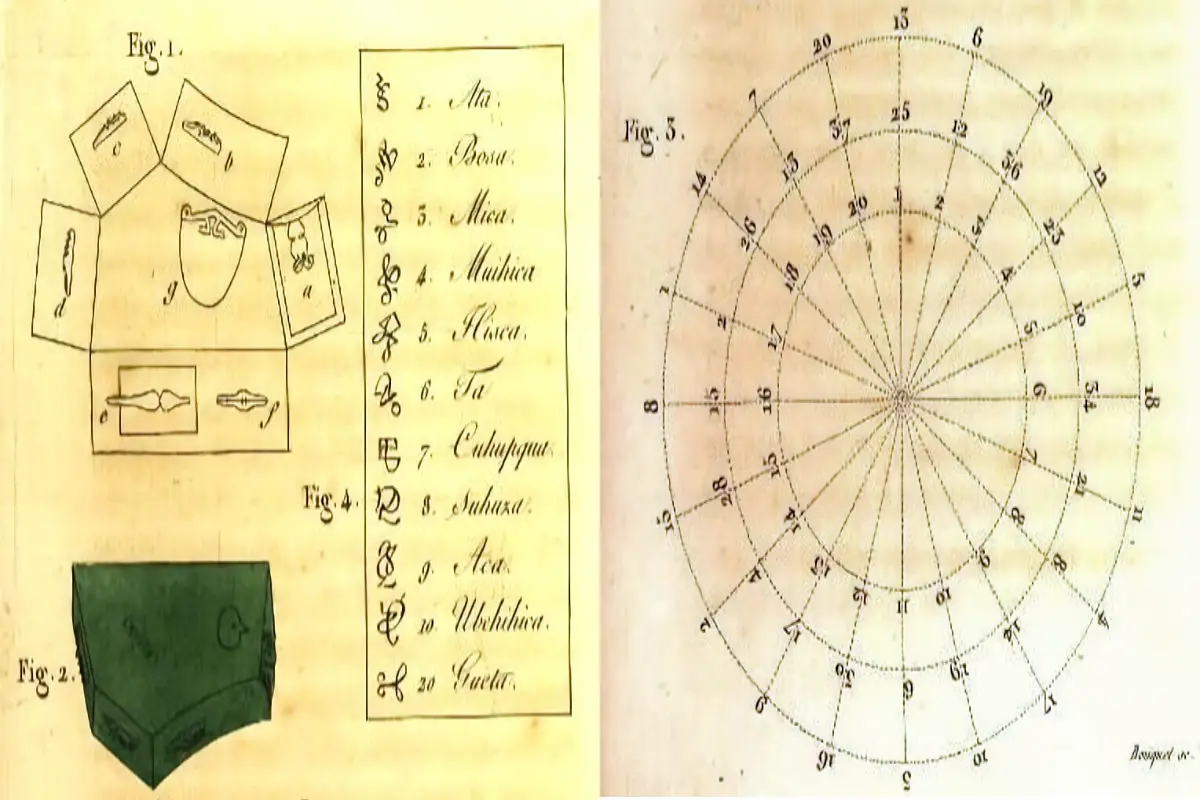 Fig. 1.
c
b
d
g
a
e
f
Fig. 2.
Fig. 4.
1. Ata.
2. Bosa.
3. Mica.
4. Muihica
5. Hisca.
6. Ta
7. Cuhupqua.
8. Suhuza.
9. Aca.
10. Ubchihica.
20 Gueta.
Fig. 3.
13
6
19
12
5
18
11
4
17
10
3
16
9
2
15
8
1
14
7
20
25
12
36
23
10
34
21
8
14
19
6
30
17
4
28
15
2
26
13
37
1
2
3
4
5
6
7
8
9
10
11
12
13
14
15
16
17
18
19
20
Bouquet sc.